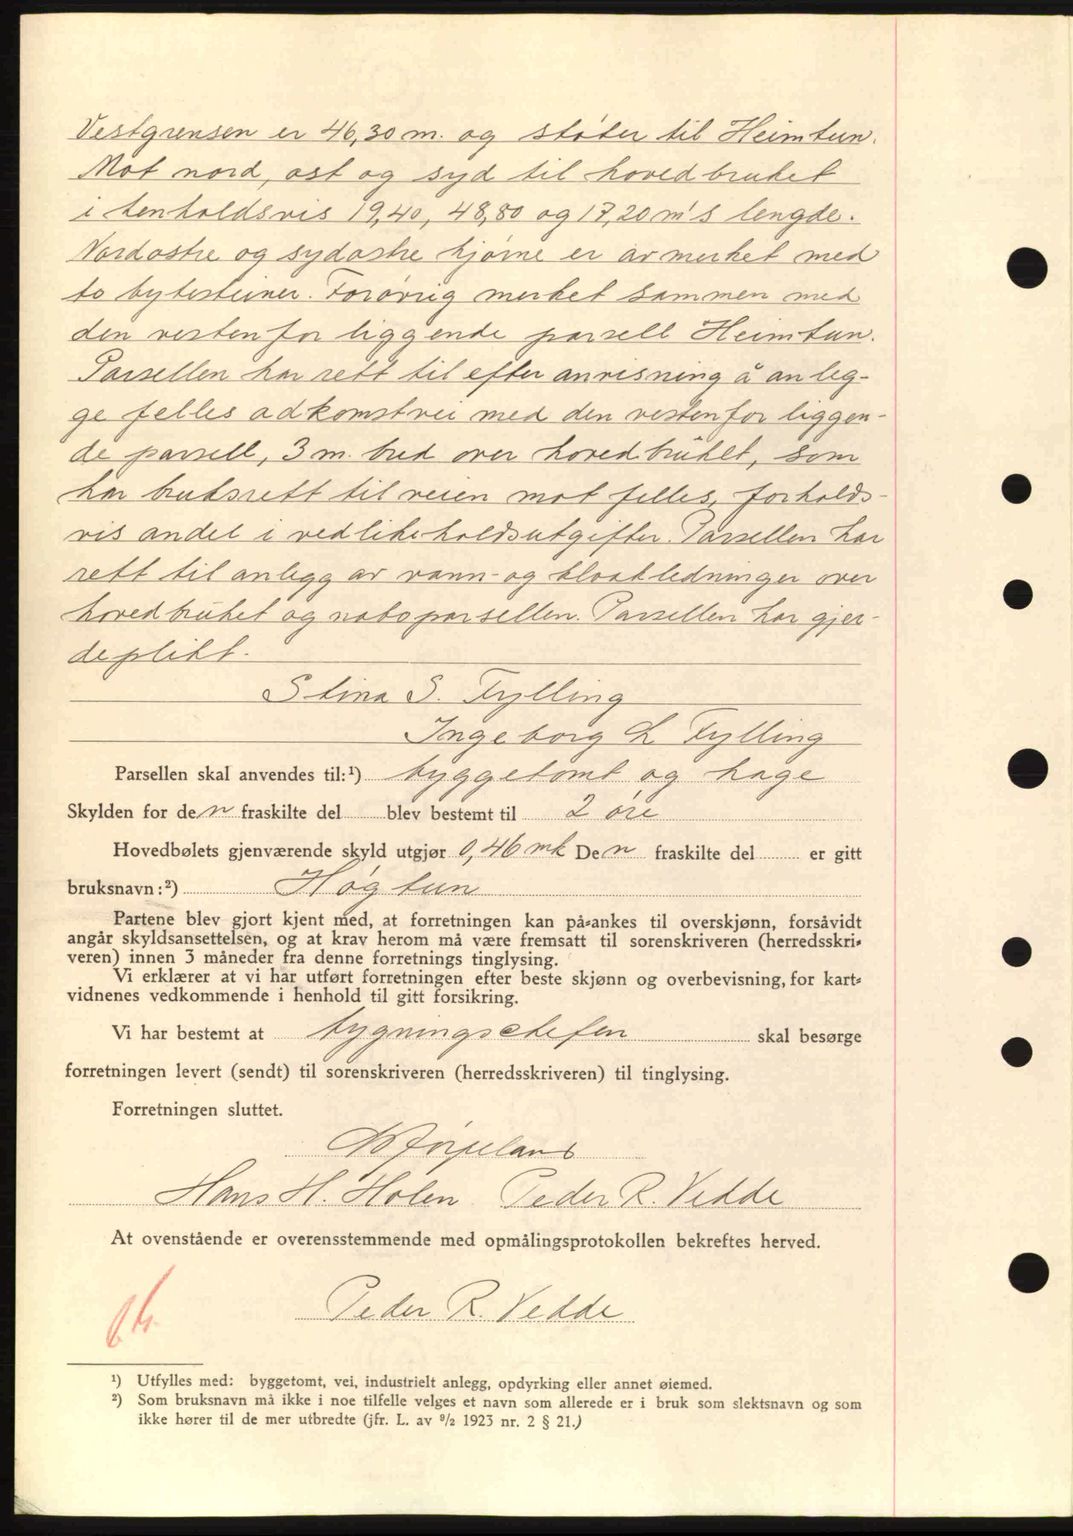 Vestgrensen er 46,30 m. og støter til Heimtun.
Mot nord, ost og syd til hovedbruket
i henholdsvis 19,40, 48,80 og 17,20 m's lengde.
Nordostre og sydostre hjørne er avmerket med
to bytesteiner. Forøvrig merket sammen med
den vestenfor liggende parsell Heimtun.
Parsellen har rett til efter anvisning å anleg-
ge felles adkomstvei med den vestenfor liggen-
de parsell, 3 m. bred over hovedbruket, som
har bruksrett til veien mot felles, forholds-
vis andel i vedlikeholdsutgifter. Parsellen har
rett til anlegg av vann- og kloakledninger over
hovedbruket og naboparsellen. Parsellen har gjer-
deplikt.
Stina S. Fylling
Ingeborg L Fylling
Parsellen skal anvendes til:¹) byggetomt og hage
Skylden for den fraskilte del blev bestemt til 2 øre
Hovedbølets gjenværende skyld utgjør 0,46 mk Den fraskilte del er gitt
bruksnavn:²) Høgtun
Partene blev gjort kjent med, at forretningen kan på-ankes til overskjønn, forsåvidt
angår skyldsansettelsen, og at krav herom må være fremsatt til sorenskriveren (herredsskri-
veren) innen 3 måneder fra denne forretnings tinglysing.
Vi erklærer at vi har utført forretningen efter beste skjønn og overbevisning, for kart-
vidnenes vedkommende i henhold til gitt forsikring.
Vi har bestemt at bygningschefen skal besørge
forretningen levert (sendt) til sorenskriveren (herredsskriveren) til tinglysing.
Forretningen sluttet.
Hans H. Holen Peder R. Vedde
At ovenstående er overensstemmende med opmålingsprotokollen bekreftes herved.
Peder R. Vedde
¹) Utfylles med: byggetomt, vei, industrielt anlegg, opdyrking eller annet øiemed.
²) Som bruksnavn må ikke i noe tilfelle velges et navn som allerede er i bruk som slektsnavn og som
ikke hører til de mer utbredte (jfr. L. av ⁹/₂ 1923 nr. 2 § 21.)